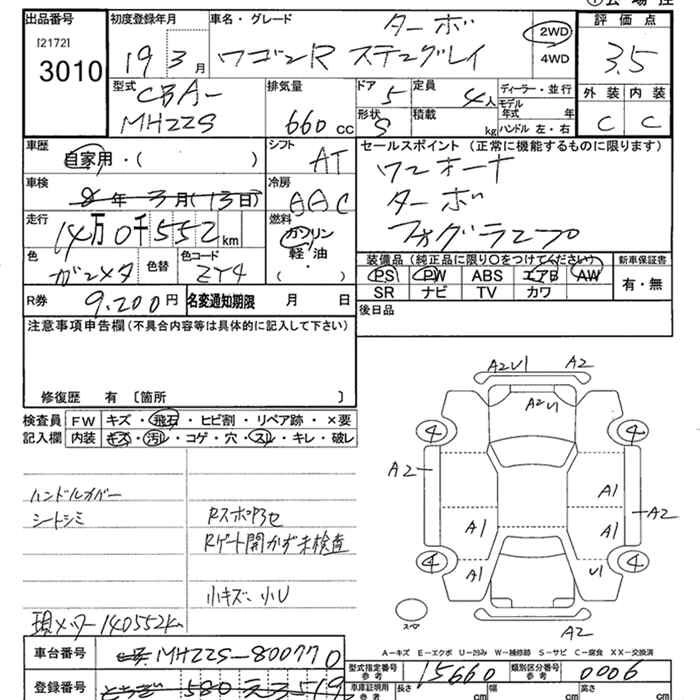 出品番号 初度登録年月 車名・グレード ターボ 2WD 評価点
[2172] 3010 19 3月 ワゴンR スティングレイ 4WD 3.5
型式 CBA- 排気量 ドア 5 定員 4人 ディーラー・並行 外装 内装
モデル年式 年
MH22S 660cc 形状 S 積載 kg ハンドル 左・右 C C
車歴 自家用・( ) シフト AT セールスポイント (正常に機能するものに限ります)
車検 年 3月(13日) 冷房 AAC ワンオーナー
ターボ
走行 14万0千552km 燃料 ガソリン フォグランプ
軽・油
( )
色 ガンメタ 色替 色コード ZY4 装備品 (純正品に限り○をつけてください) 新車保証書
PS PW ABS エアB AW 有・無
SR ナビ TV カワ
R券 9,200円 名変通知期限 月 日 後日品
注意事項申告欄 (不具合内容等は具体的に記入して下さい)
修復歴 有 〔箇所 〕
検査員 FW キズ・飛石・ヒビ割・リペア跡・×要
記入欄 内装 キズ・汚レ・コゲ・穴・スレ・キレ・破レ
A2U1 A2
A2U1
4 4
A2 A1 A2
A1 A1
4 A1 U1 4
スペア
A2
ハンドルカバー
シートシミ Rスポ
Rゲート開かず未検査
小キズ、小U
現メーター140552km
A−キズ E−エクボ U−凹み W−補修跡 S−サビ C−腐食 XX−交換済
車台番号 MH22S-800770 型式指定番号 参考 15660 類別区分番号 参考 0006
登録番号 580 車庫証明用 参考 長さ cm 幅 cm 高さ cm